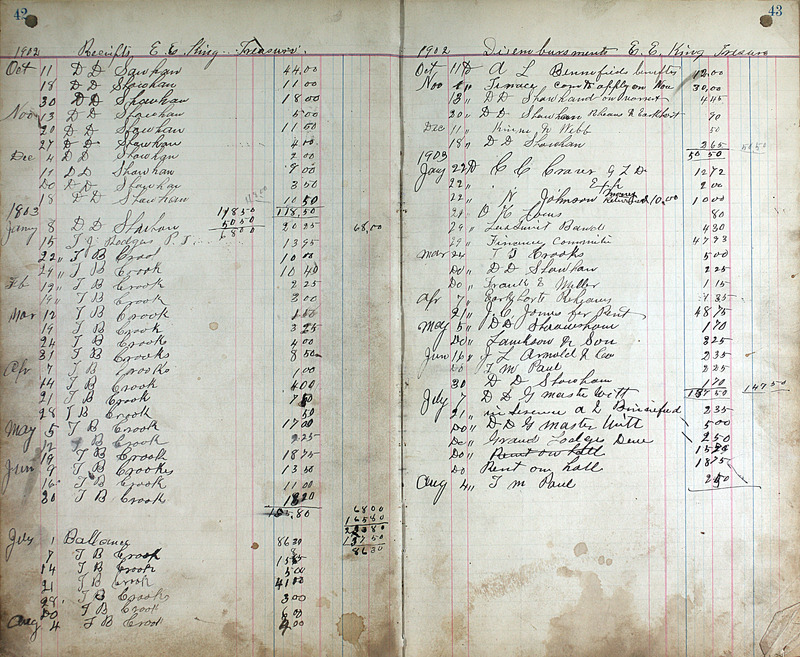 42
1902 Receipts E. E. King Treasurer.
Oct 11 D D Sawhan 44.00
18 D D Shawhan 11 00
30 D D Shawhan 18 00
Nov 13 D D Shawhan 5 00
20 D D Sawhan 11 50
27 D D Shawhan 4 00
Dec 4 D D Shawhan 2 00
11 D D Shawhan 9 00
Do D D Shawhan 3 50
18 D D Shawhan 10 50
1903 118 50 118.50
Jany 8 D D Shahan 50 50 20 25 68,00
6 8 00
15 T J Rodgers P T 13 95
22 " T B Crook 10 00
29 " T B Crook 10 40
Feb 12 " T B Crook 2 25
19 " T B Crook 3 00
Mar 12 T B Crook 1 50
19 T B Crook 3 25
24 T B Crooks 4 00
31 T B Crooks 8 50
Apr 7 T B Crooks 1 00
14 T B Crook 4 00
21 T B Crook 7 50
28 T B Crook 50
May 5 T B Crook 17 00
12 T B Crook 2 25
19 T B Crook 18 75
Jun 9 T B Crookes 13 50
16 T B Crook 11 00
30 T B Crook 18 20
68 00
165 80
July 1 Ballance 86 30
86 30
7 T B Crook
14 T B Crook 5 00
21 T B Crook 41 00
28 T B Crooks 3 00
Do T B Crook 6 00
Aug 4 T B Crook 00
43
1902 Disembursments E. E. King Treasure
Oct 11 D A L Bennefields benefites 12 00
Nov " Finnace comt apply on Nov 30,00
13 " D D Shawhand on warrent 4 45
20 " D D Shawhan Rehans & Earkhart 90
Dec 11 " Kinne & Webb 50
18 " D D Shawhan 2 65
1903 50 50 50 50
Jany 22 D C C Craur G L D 12 72
22 " 2 00
22 " N Johnson money Returned 10.00 10 00
21 O K 80
29 " Band 4 30
29 " Finance committi 47 93
Mar 24 T B Crooks 5 00
Do D D Shawhan 2 25
Do Frank E Miller 1 15
Apr 7 " Earkharts Rehans 35
21 " J. C. Jones for Rent 48 75
May 5 " D D Shaawhan 1 70
Do " Lawkson & Son 3 25
Jun 16 " J L Arnold & Co 2 35
Do T M Paul 2 25
30 D D Shawhan 1 70
July 7 D D G master Witt 50 147 50
21 " a L 2 35
Do " D D G master Witt 5 00
Do " Grand Lodge Deue 2 50
Do " Rent ow hall
Do Rent ow hall 18 75
Aug 4 " T M Paul